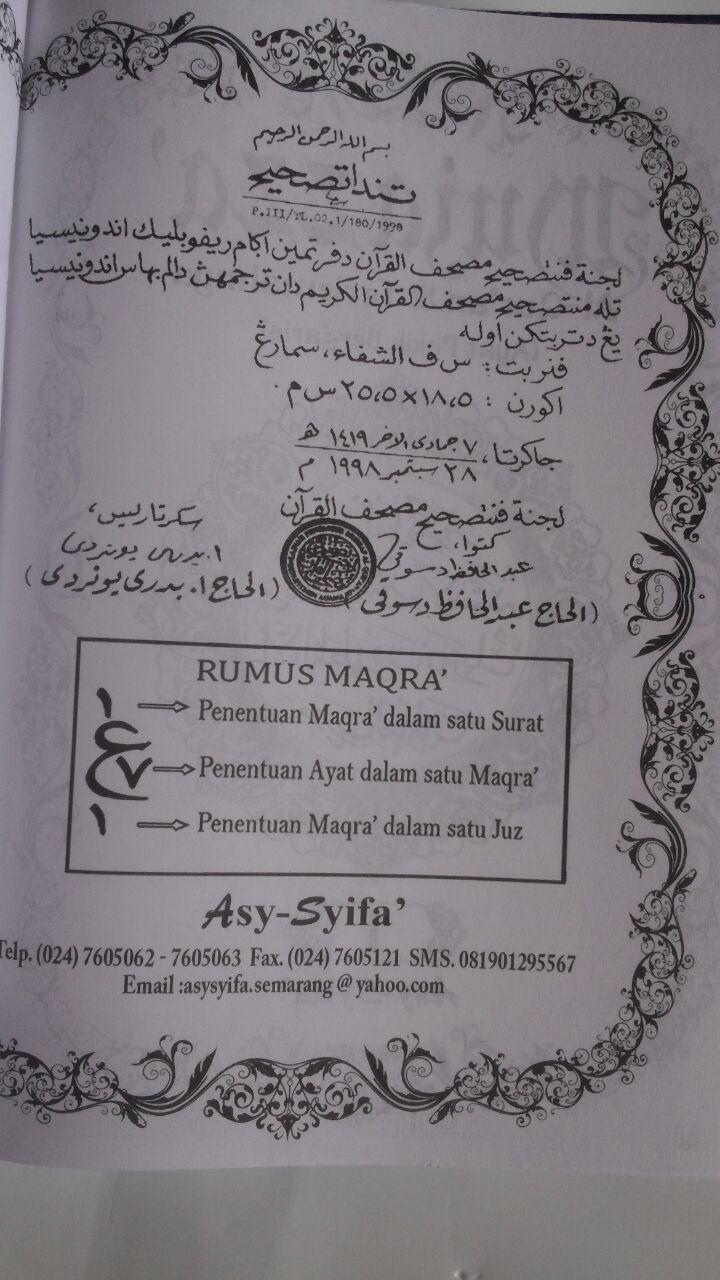 بسم الله الرحمن الرحيم
تندا تصحيح
P.III/TL.02.1/180/1998
لجنة فنتصحيح مصحف القرآن دفرتمين اݢام ريفوبليك اندونيسيا
تله منتصحيح مصحف القرآن الكريم دان ترجمهڽ دالم بهاس اندونيسيا
يڠ دتربتكن اوله
فنربت : س ف الشفاء، سمارڠ
اكورن : ١٨،٥×٢٥،٥ س م.
جاكرتا، ٧ جمادى الاخر ١٤١٩ ه
٢٨ سبتمبر ١٩٩٨ م
لجنة فنتصحيح مصحف القرآن
كتوا،
سكرتاريس،
عبد الحافظ دسوقي
ا. بدري يونردي
(الحاج عبد الحافظ دسوقى)
(الحاج ا. بدرى يونردى)
RUMUS MAQRA'
١ Penentuan Maqra' dalam satu Surat
ع ٧ Penentuan Ayat dalam satu Maqra'
١ Penentuan Maqra' dalam satu Juz
Asy-Syifa'
Telp. (024) 7605062 - 7605063 Fax. (024) 7605121 SMS. 081901295567
Email :asysyifa.semarang@yahoo.com